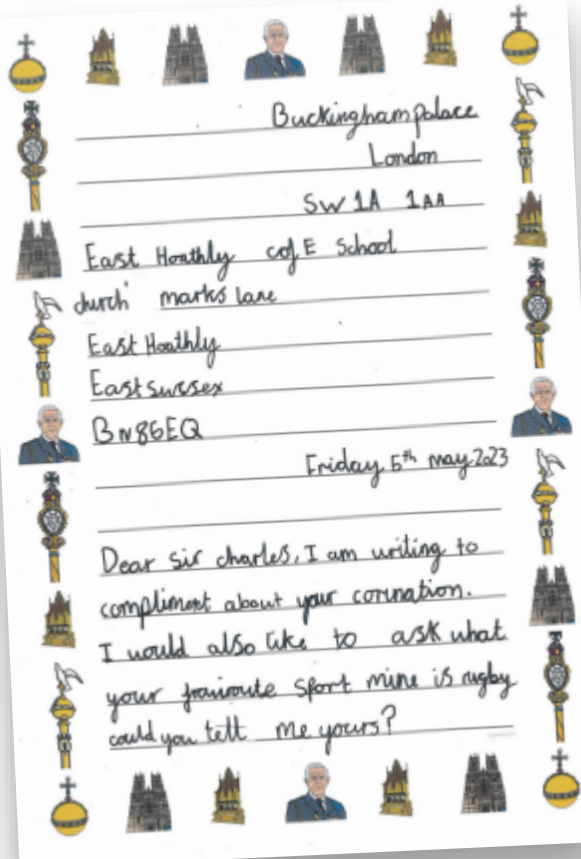 Buckingham palace
London
SW1A 1AA
East Hoathly cof E School
church marks lane
East Hoathly
East sussex
BN86EQ
Friday 5th may 2023
Dear sir charles, I am writing to
compliment about your corination.
I would also like to ask what
your frairoute sport mine is rugby
could you tell me yours?